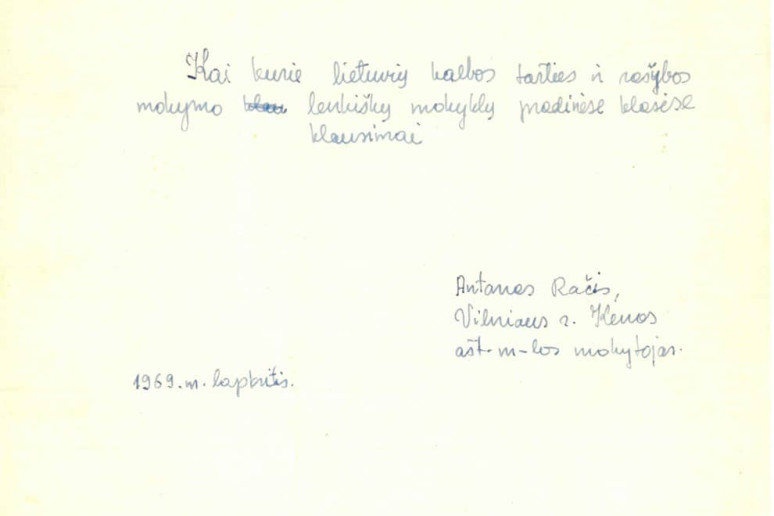 Kai kurie lietuvių kalbos tarties ir rašybos
mokymo lenkiškų mokyklų pradinėse klasėse
klausimai
Antanas Račis,
Vilniaus r. Kenos
ašt. m-los mokytojas.
1969. m. lapkritis.